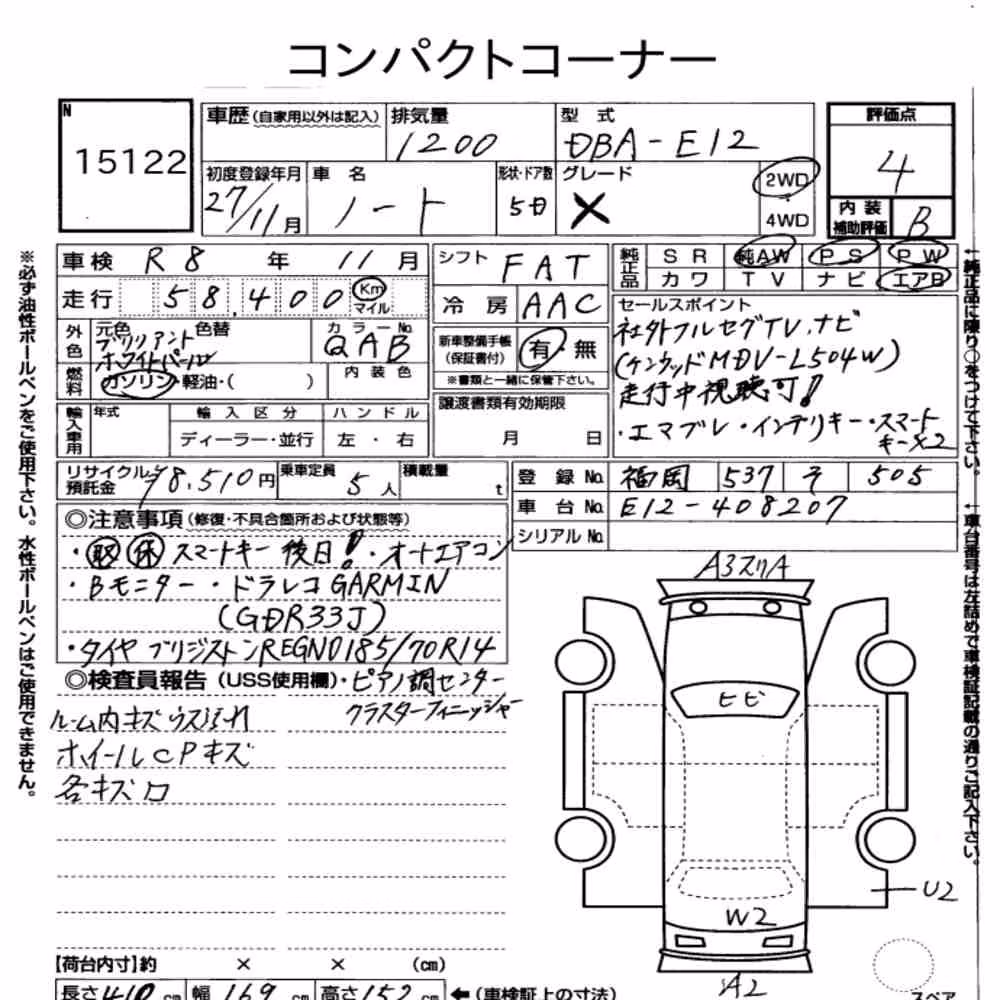 コンパクトコーナー
N
15122
車歴(自家用以外は記入)
排気量
1200
型 式
DBA-E12
評価点
4
内 装
補助評価
B
初度登録年月
27/11月
車 名
ノート
形状・ドア数
5D
グレード
X
2WD
4WD
車検 R8 年 11 月
シフト FAT
純正品
SR 純AW PS PW
カワ TV ナビ エアB
走行 58,400 Km マイル
冷 房 AAC
セールスポイント
社外フルセグTV.ナビ
(ケンウッドMDV-L504W)
走行中視聴可!
・エマブレ・インテリキー・スマート
キーX2
外色
元色 色替
ブリリアント
ホワイトパール
カラーNo
QAB
新車整備手帳
(保証書付)
有・無
※書類と一緒に保管下さい。
燃料
ガソリン・軽油・( )
内 装 色
輸入車用
年式
輸 入 区 分
ハ ン ド ル
ディーラー・並行
左 ・ 右
譲渡書類有効期限
月 日
リサイクル
預託金
¥8,510円
乗車定員
5人
積載量
t
登 録 No. 福岡 537 そ 505
車 台 No. E12-408207
シリアル No.
◎注意事項(修復・不具合箇所および状態等)
・取 保 スマートキー 後日!・オートエアコン
・Bモニター・ドラレコGARMIN
(GDR33J)
・タイヤ ブリジストンREGNO185/70R14
◎検査員報告(USS使用欄)・ピアノ調センター
クラスターフィニッシャー
ルーム内キズ ウス汚れ
ホイールCPキズ
各キズ口
A3スリA
ヒビ
W2
U2
A2
スペア
【荷台内寸】約 × × (cm)
長さ410cm 幅169cm 高さ152cm ←(車検証上の寸法)
※必ず油性ボールペンをご使用下さい。水性ボールペンはご使用できません。
←純正品に限り○をつけて下さい。
←車台番号は左詰めで車検証記載の通りご記入下さい。